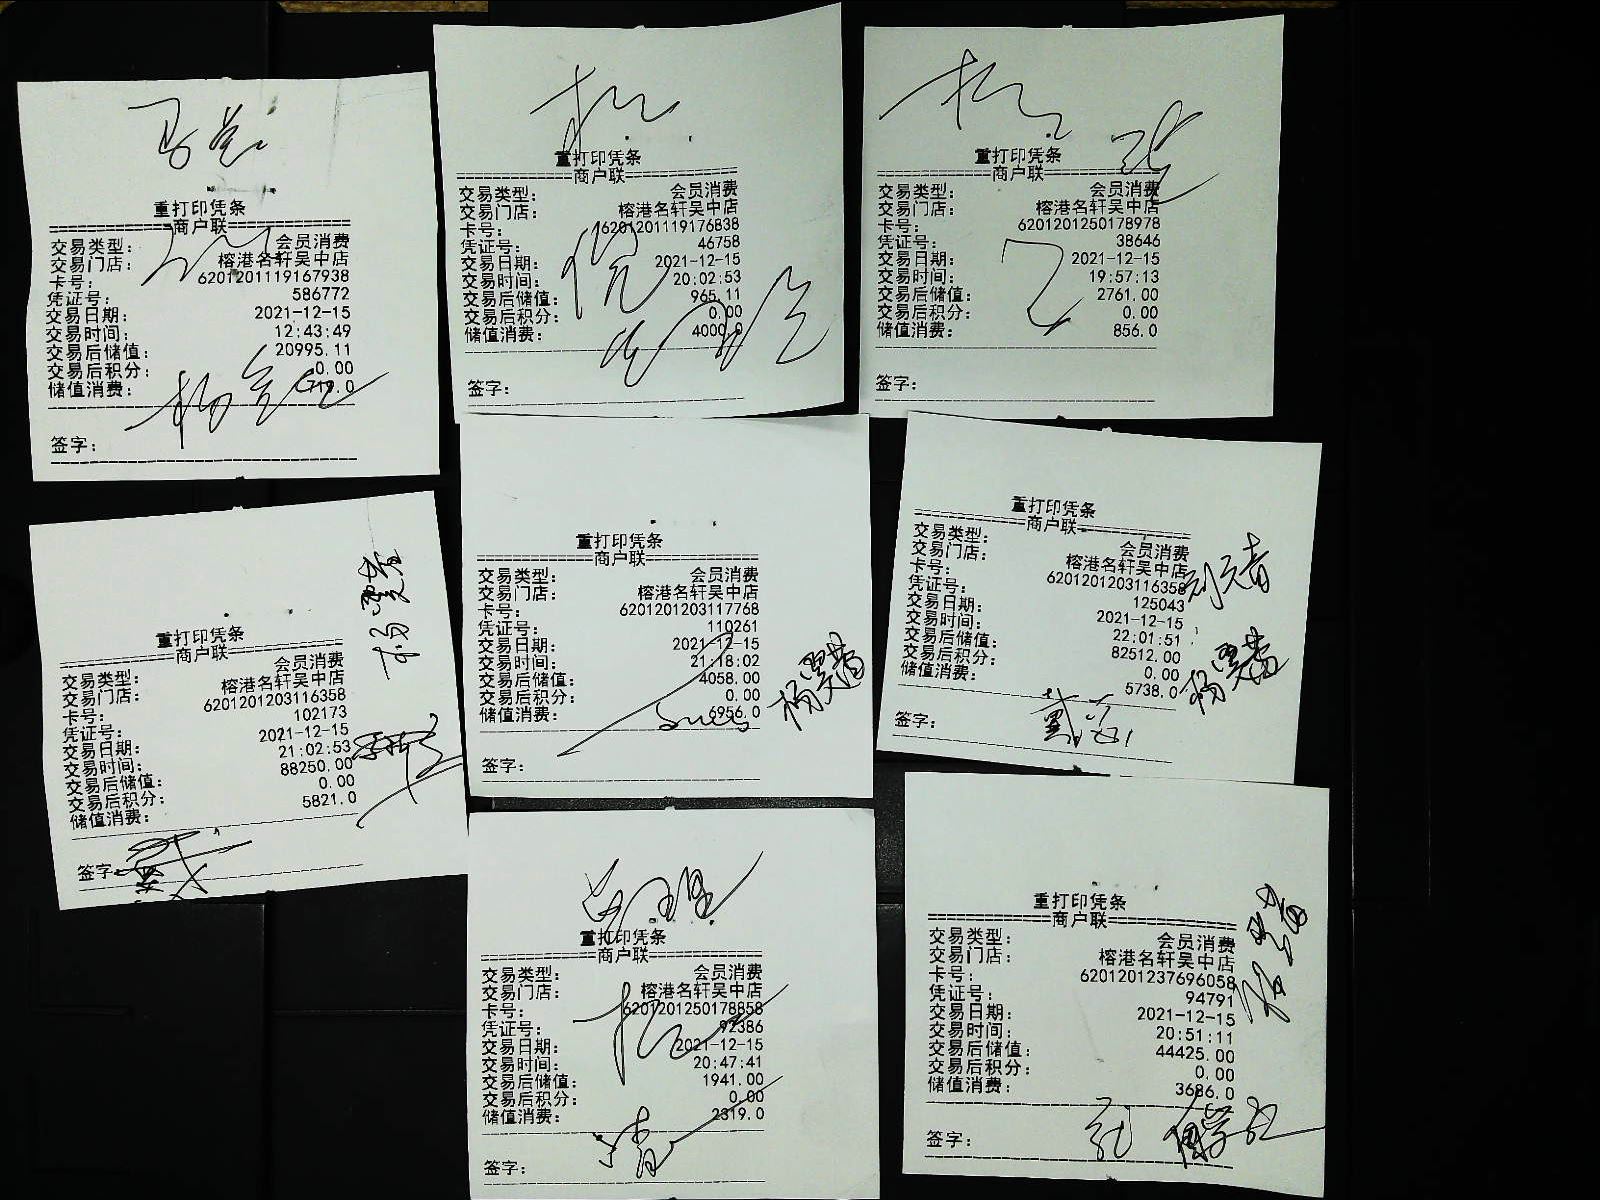 重打印凭条
商户联
交易类型： 会员消费
交易门店： 榕港名轩吴中店
卡号： 6201201119167938
凭证号： 586772
交易日期： 2021-12-15
交易时间： 12:43:49
交易后储值： 20995.11
交易后积分： 0.00
储值消费：
签字：
重打印凭条
商户联
交易类型： 会员消费
交易门店： 榕港名轩吴中店
卡号： 6201201119176838
凭证号： 46758
交易日期： 2021-12-15
交易时间： 20:02:53
交易后储值： 965.11
交易后积分： 0.00
储值消费： 4000.0
签字：
重打印凭条
商户联
交易类型： 会员消费
交易门店： 榕港名轩吴中店
卡号： 6201201250178978
凭证号： 38646
交易日期： 2021-12-15
交易时间： 19:57:13
交易后储值： 2761.00
交易后积分： 0.00
储值消费： 856.0
签字：
重打印凭条
商户联
交易类型： 会员消费
交易门店： 榕港名轩吴中店
卡号： 6201201203116358
凭证号： 102173
交易日期： 2021-12-15
交易时间： 21:02:53
交易后储值： 88250.00
交易后积分： 0.00
储值消费： 5821.0
签字：
重打印凭条
商户联
交易类型： 会员消费
交易门店： 榕港名轩吴中店
卡号： 6201201203117768
凭证号： 110261
交易日期： 2021-12-15
交易时间： 21:18:02
交易后储值： 4058.00
交易后积分： 0.00
储值消费： 6956.0
签字：
重打印凭条
商户联
交易类型： 会员消费
交易门店： 榕港名轩吴中店
卡号： 6201201203116358
凭证号： 125043
交易日期： 2021-12-15
交易时间： 22:01:51
交易后储值： 82512.00
交易后积分： 0.00
储值消费： 5738.0
签字：
重打印凭条
商户联
交易类型： 会员消费
交易门店： 榕港名轩吴中店
卡号： 6201201250178858
凭证号： 92386
交易日期： 2021-12-15
交易时间： 20:47:41
交易后储值： 1941.00
交易后积分： 0.00
储值消费： 2319.0
签字：
重打印凭条
商户联
交易类型： 会员消费
交易门店： 榕港名轩吴中店
卡号： 6201201237696058
凭证号： 94791
交易日期： 2021-12-15
交易时间： 20:51:11
交易后储值： 44425.00
交易后积分： 0.00
储值消费： 3686.0
签字：